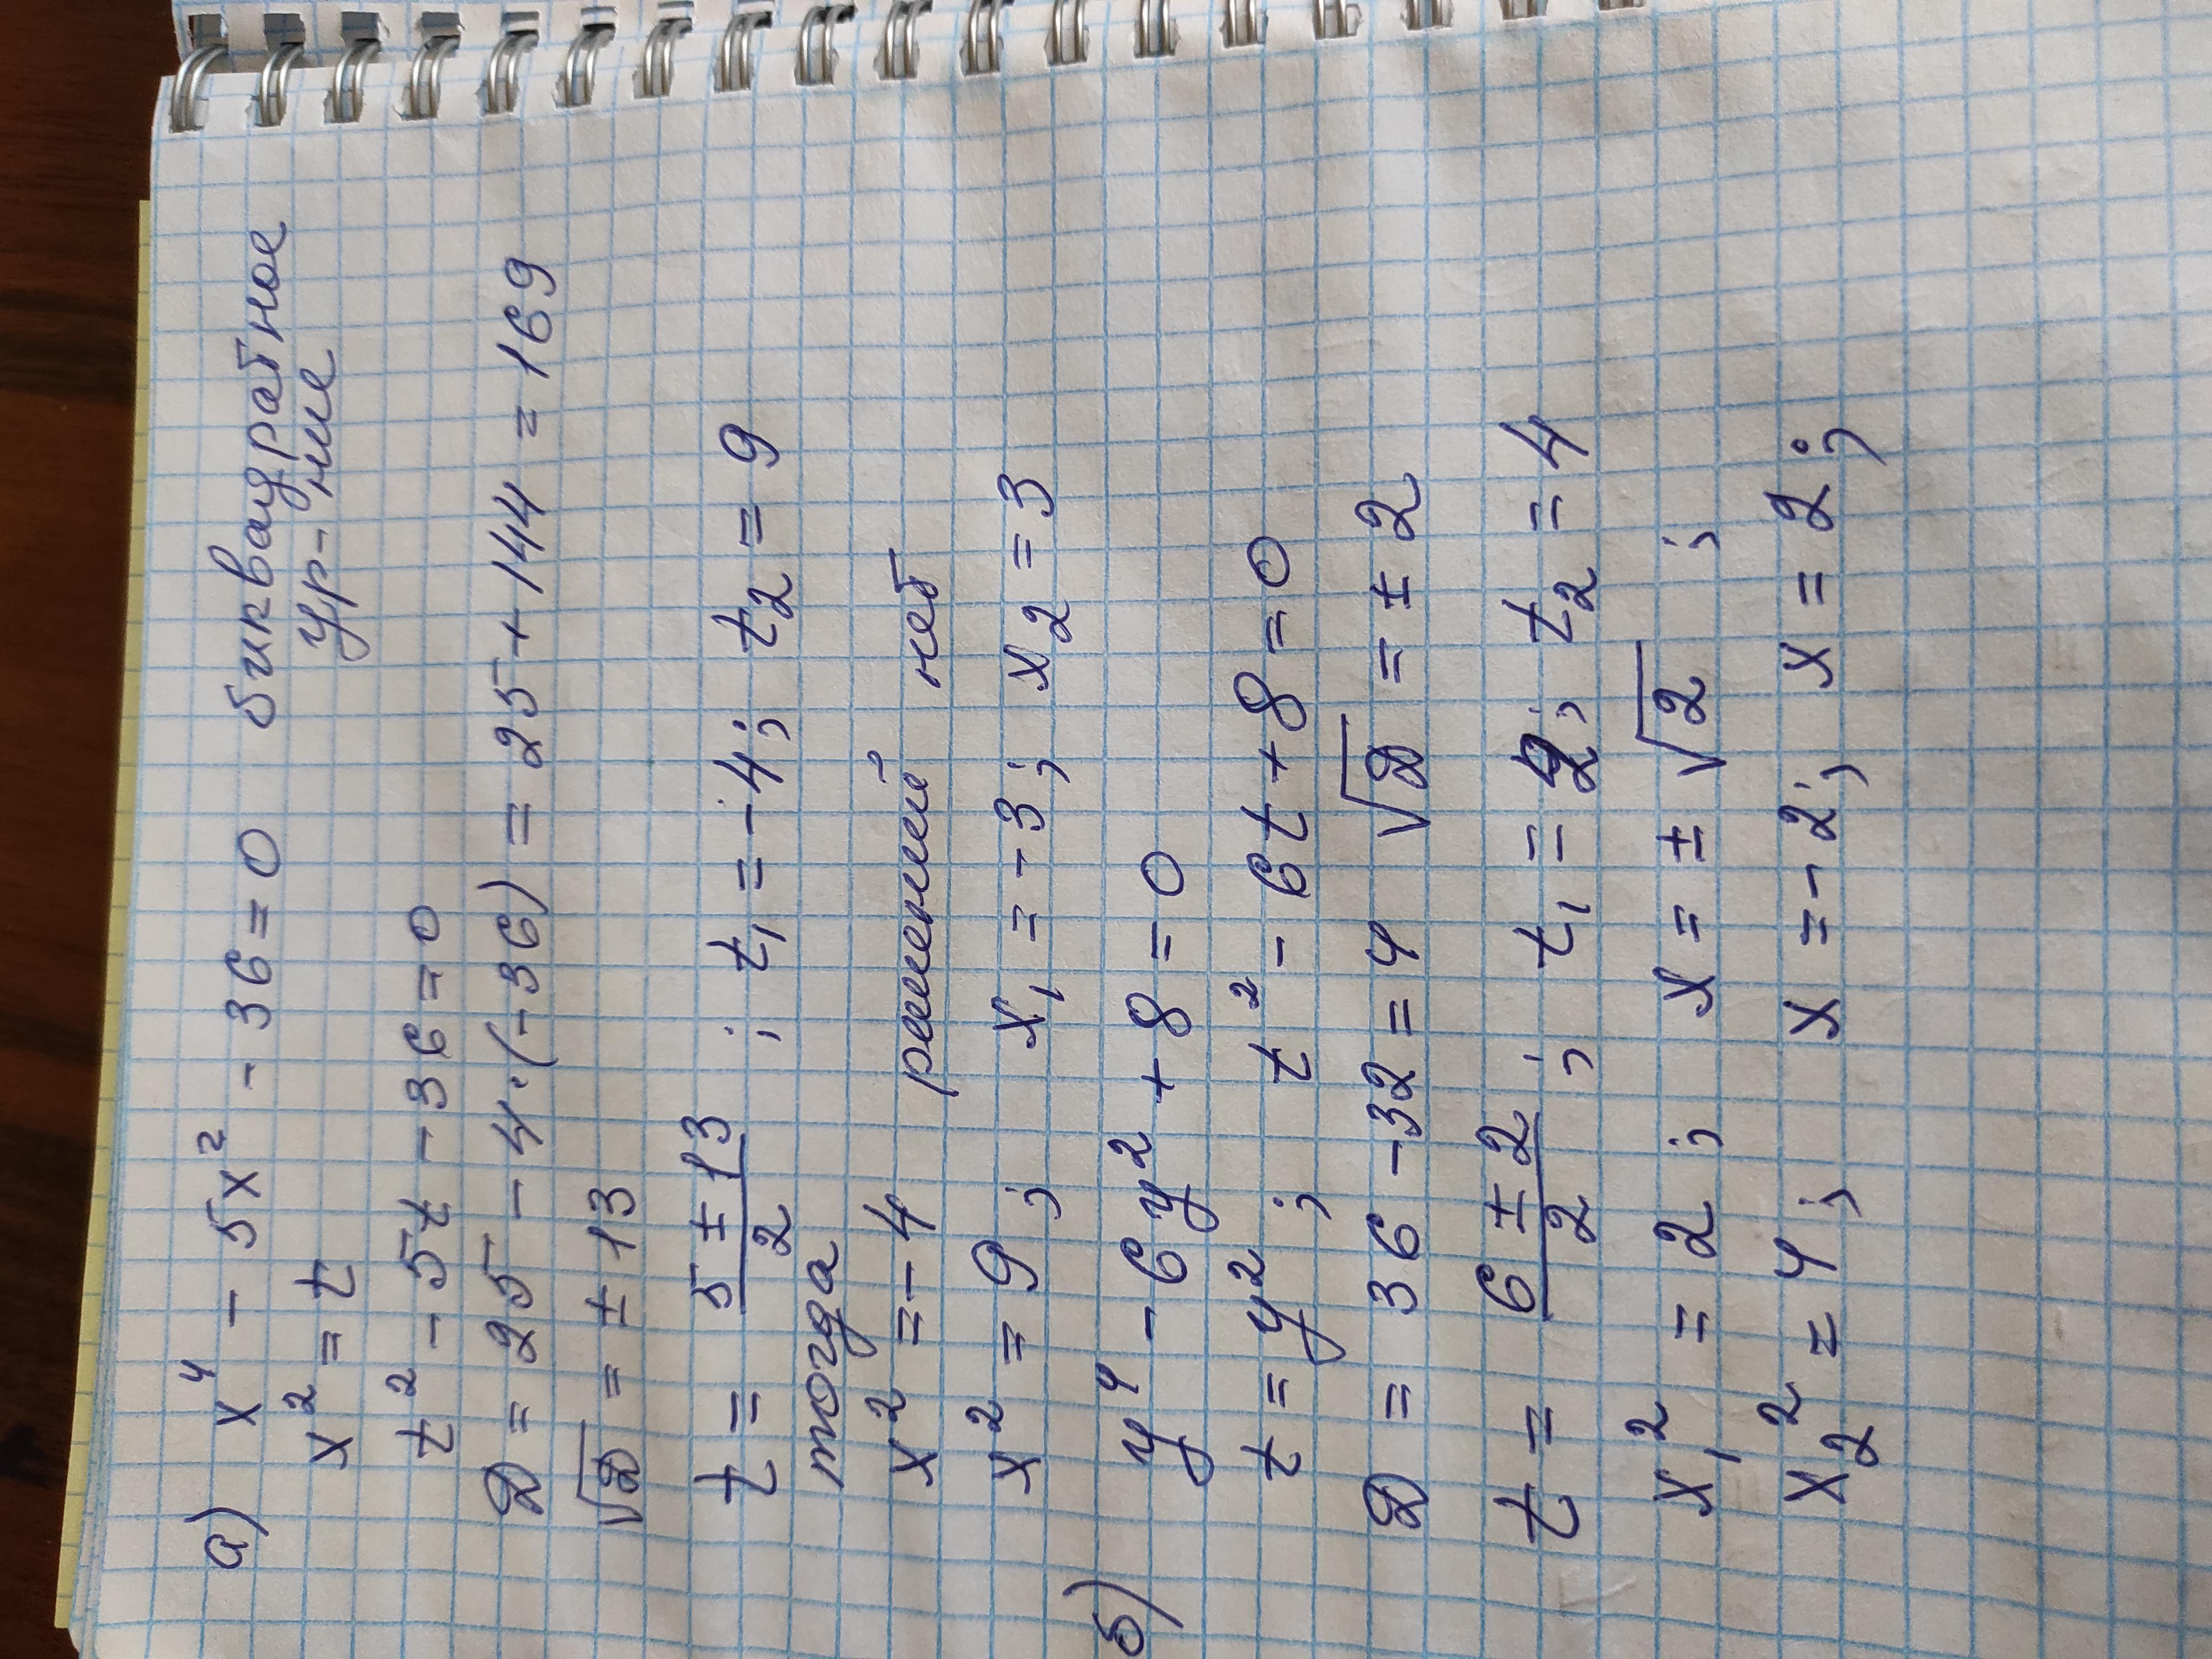 а) x⁴ - 5x² - 36 = 0 биквадратное
x² = t ур-ние
t² - 5t - 36 = 0
D = 25 - 4·(-36) = 25 + 144 = 169
√D = ± 13
t = (5 ± 13)/2 ; t₁ = -4; t₂ = 9
тогда
x² = -4 решений нет
x² = 9; x₁ = -3; x₂ = 3
б) y⁴ - 6y² + 8 = 0
t = y²; t² - 6t + 8 = 0
D = 36 - 32 = 4 √D = ± 2
t = (6 ± 2)/2 ; t₁ = 2; t₂ = 4
x₁² = 2; x = ± √2 ;
x₂² = 4; x = -2; x = 2;